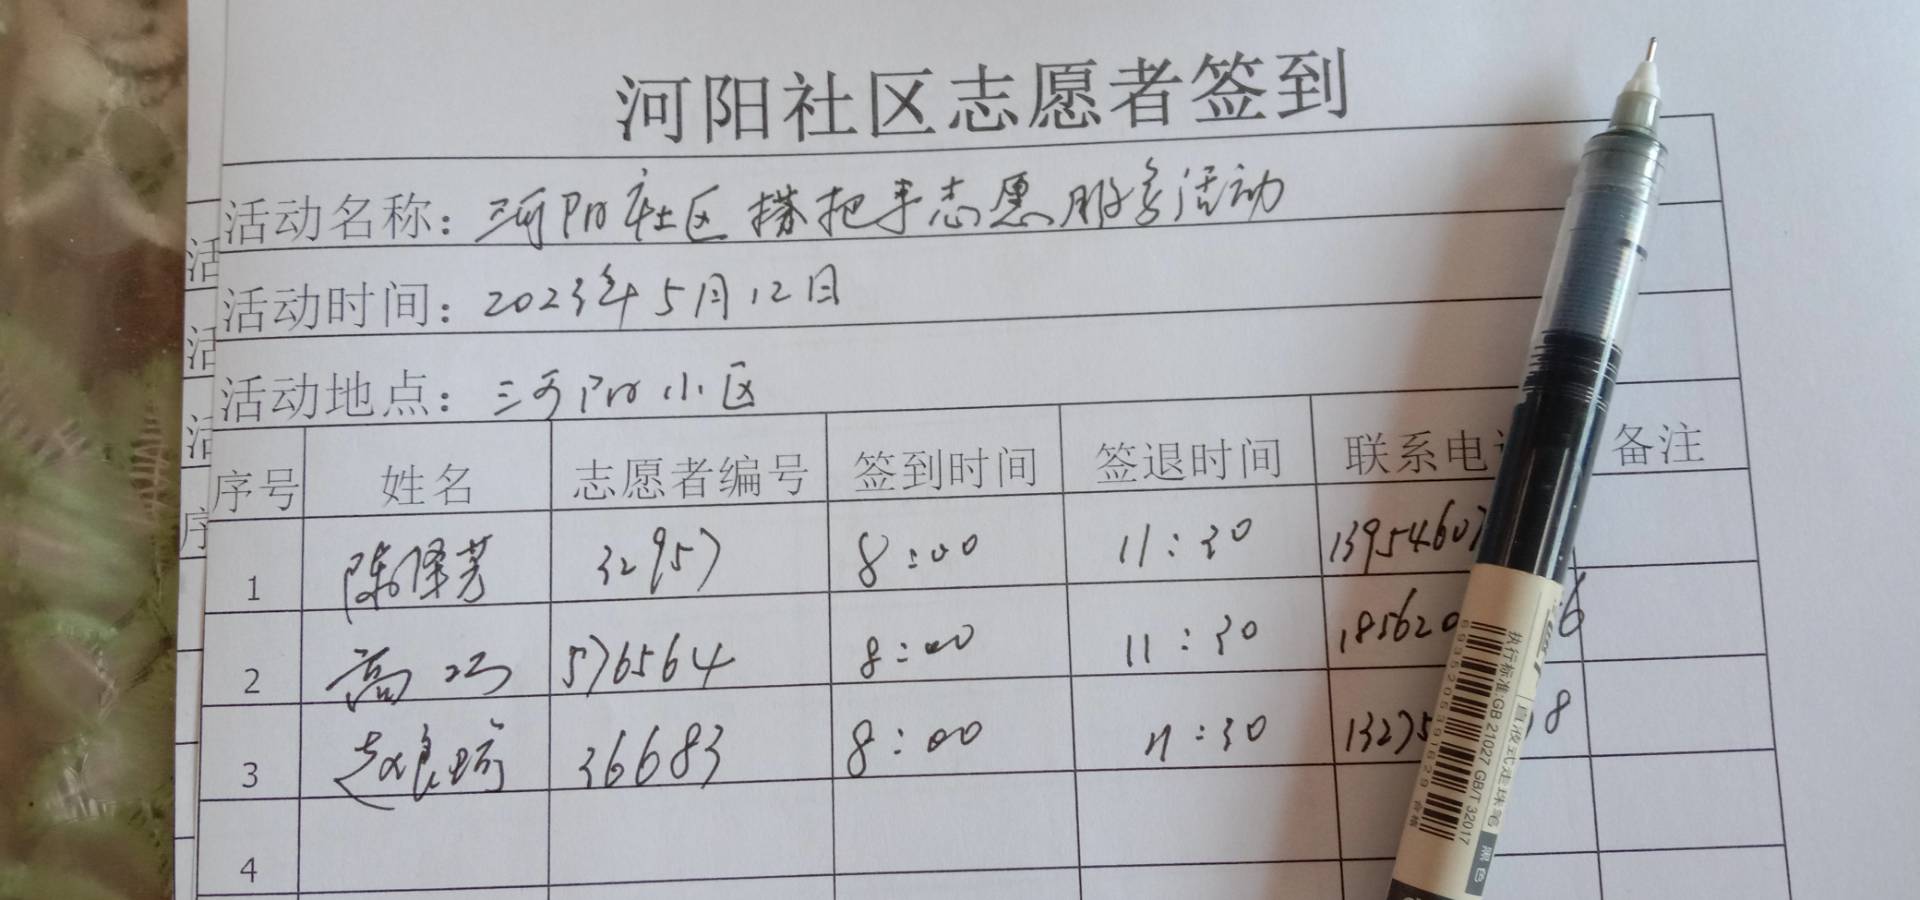 河阳社区志愿者签到
活动名称：河阳社区搭把手志愿服务活动
活动时间：2023年5月12日
活动地点：河阳小区
序号 姓名 志愿者编号 签到时间 签退时间 联系电 备注
1 陈泽芳 32957 8:00 11:30 1395460
2 高巧 576564 8:00 11:30 185620 6
3 赵 36683 8:00 11:30 13275 8
4
活
活
活
序
执行标准:GB 21027 GB/T 32017
直液式走珠笔
黑色
合格